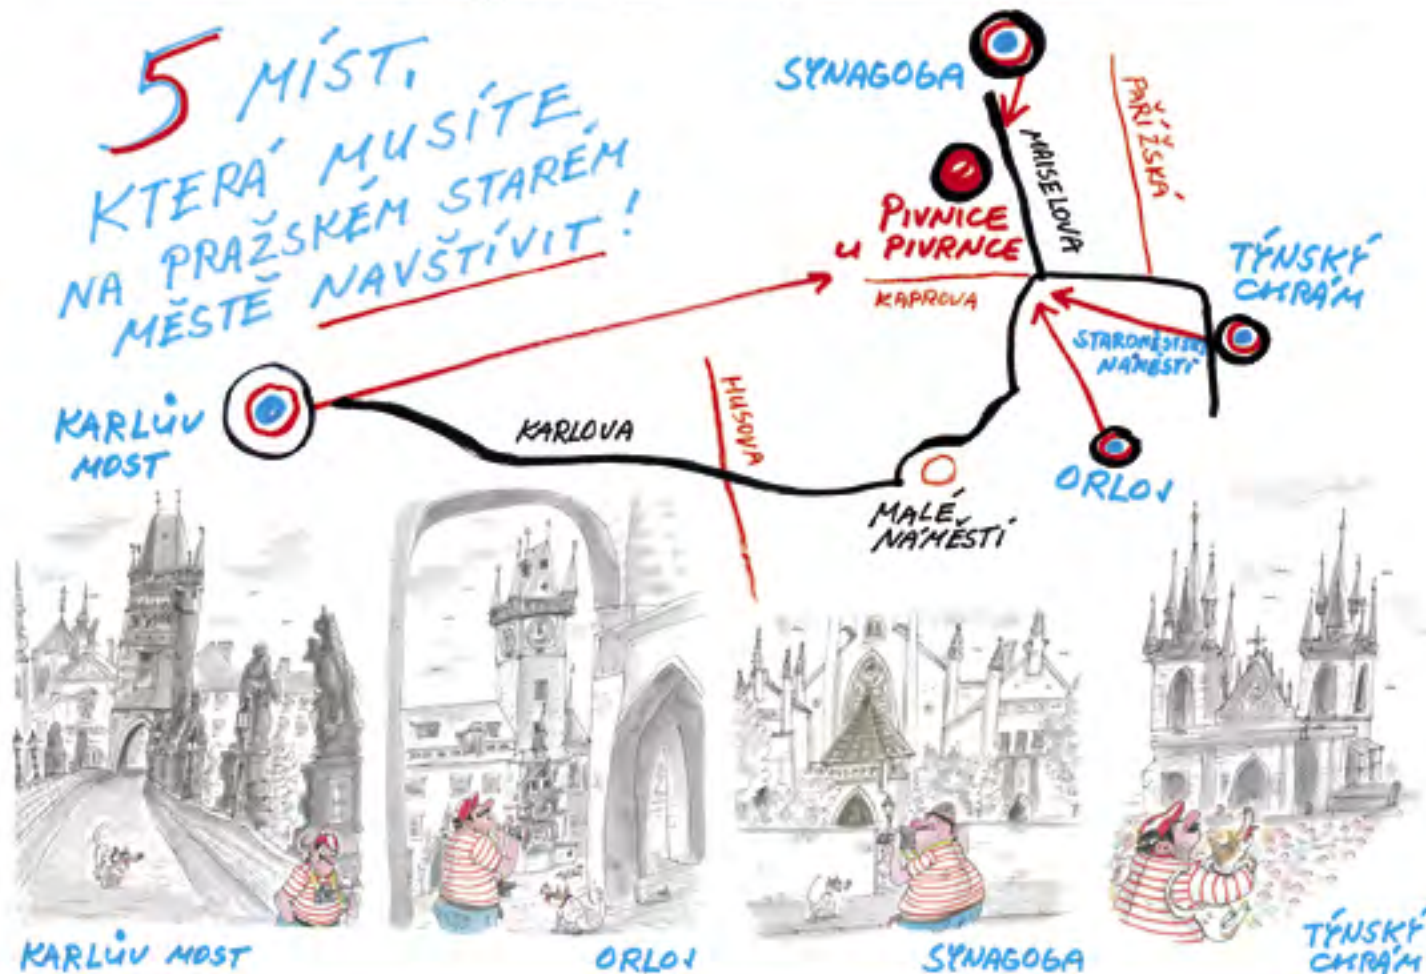 5 MÍST,
KTERÁ MUSÍTE
NA PRAŽSKÉM STARÉM
MĚSTĚ NAVŠTÍVIT!
SYNAGOGA
PAŘÍŽSKÁ
MAISELOVA
PIVNICE
U PIVRNCE
KAPROVA
TÝNSKÝ
CHRÁM
STAROMĚSTSKÉ
NÁMĚSTÍ
KARLŮV
MOST
KARLOVA
HUSOVA
MALÉ
NÁMĚSTÍ
ORLOJ
KARLŮV MOST
ORLOJ
SYNAGOGA
TÝNSKÝ
CHRÁM